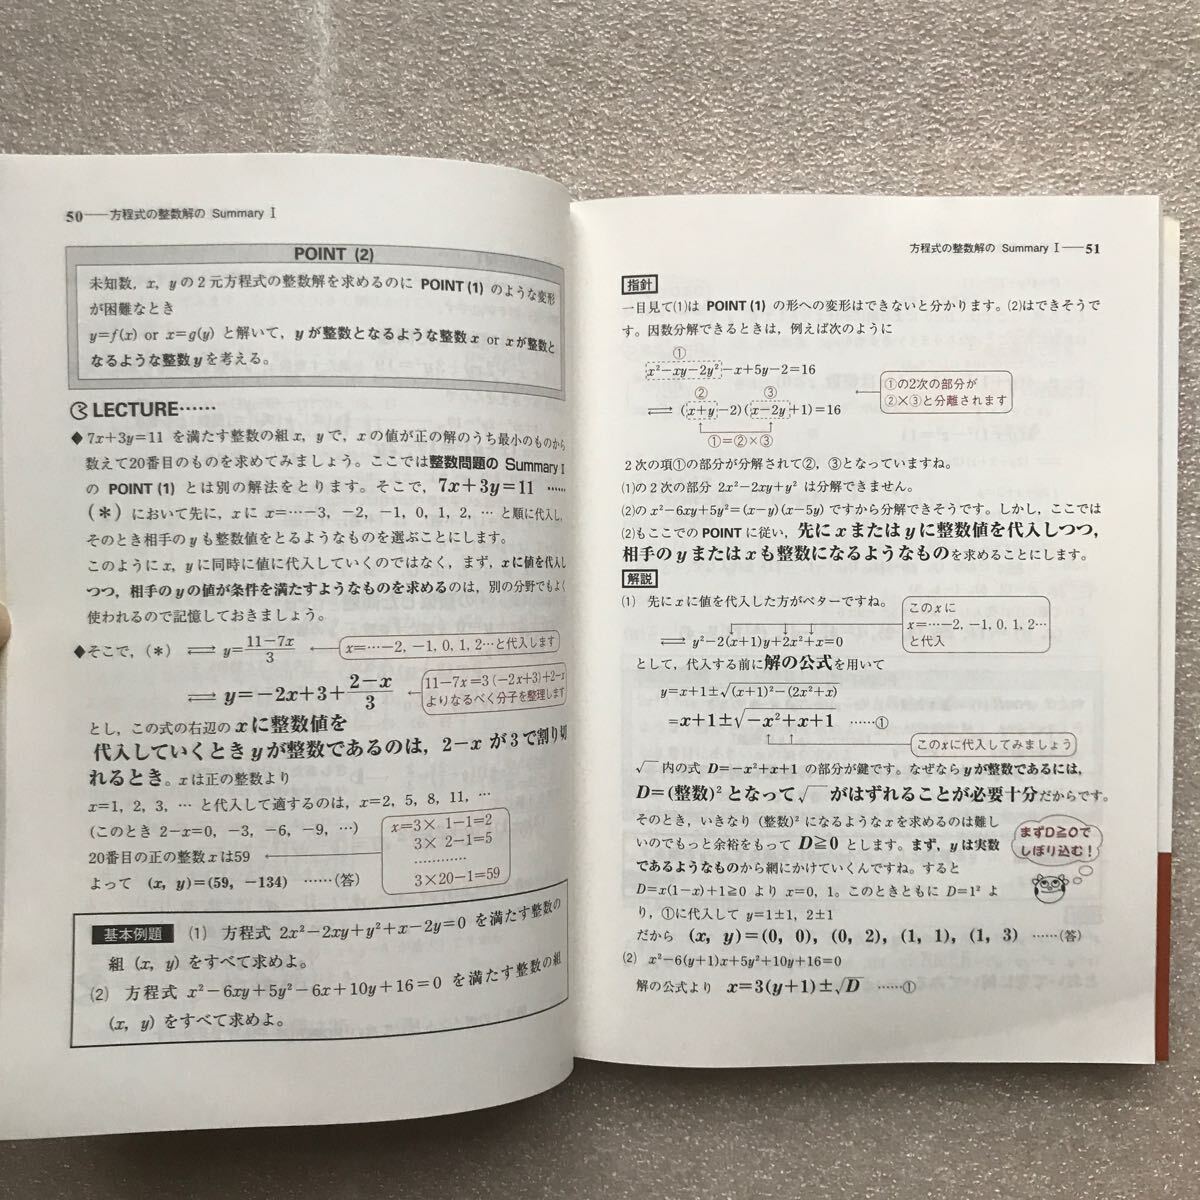 50――方程式の整数解の Summary Ⅰ
POINT (2)
未知数, x, yの2元方程式の整数解を求めるのに POINT(1) のような変形
が困難なとき
y=f(x) or x=g(y) と解いて, yが整数となるような整数x or xが整数と
なるような整数yを考える。
LECTURE……
◆7x+3y=11 を満たす整数の組x, yで, xの値が正の解のうち最小のものから
数えて20番目のものを求めてみましょう。ここでは整数問題の Summary Ⅰ
の POINT(1) とは別の解法をとります。そこで, 7x+3y=11 ……
(*)において先に, xに x=…−3, −2, −1, 0, 1, 2, … と順に代入し,
そのとき相手のyも整数値をとるようなものを選ぶことにします。
このようにx, yに同時に値に代入していくのではなく, まず, xに値を代入し
つつ, 相手のyの値が条件を満たすようなものを求めるのは, 別の分野でもよく
使われるので記憶しておきましょう。
◆そこで, (*) ⟺ y=(11−7x)/3 ← x=…−2, −1, 0, 1, 2…と代入します
⟺ y=−2x+3+(2−x)/3 ← 11−7x=3(−2x+3)+2−x
よりなるべく分子を整理します
とし, この式の右辺のxに整数値を
代入していくときyが整数であるのは, 2−xが3で割り切
れるとき。xは正の整数より
x=1, 2, 3, … と代入して適するのは, x=2, 5, 8, 11, …
(このとき 2−x=0, −3, −6, −9, …)
20番目の正の整数xは59 ←
よって (x, y)=(59, −134) ……(答)
x=3× 1−1=2
3× 2−1=5
…………
3×20−1=59
基本例題 (1) 方程式 2x²−2xy+y²+x−2y=0 を満たす整数の
組(x, y)をすべて求めよ。
(2) 方程式 x²−6xy+5y²−6x+10y+16=0 を満たす整数の組
(x, y)をすべて求めよ。
方程式の整数解の Summary Ⅰ――51
指針
一目見て(1)は POINT(1) の形への変形はできないと分かります。(2)はできそうで
す。因数分解できるときは, 例えば次のように
①
x²−xy−2y²−x+5y−2=16
② ③
⟺ (x+y−2)(x−2y+1)=16
①=②×③
①の2次の部分が
②×③と分離されます
2次の項①の部分が分解されて②, ③となっていますね。
(1)の2次の部分 2x²−2xy+y² は分解できません。
(2)の x²−6xy+5y²=(x−y)(x−5y)ですから分解できそうです。しかし, ここでは
(2)もここでの POINT に従い, 先にxまたはyに整数値を代入しつつ,
相手のyまたはxも整数になるようなものを求めることにします。
解説
(1) 先にxに値を代入した方がベターですね。
このxに
x=…−2, −1, 0, 1, 2…
と代入
⟺ y²−2(x+1)y+2x²+x=0
として, 代入する前に解の公式を用いて
y=x+1±√((x+1)²−(2x²+x))
=x+1±√(−x²+x+1) ……①
このxに代入してみましょう
√ 内の式 D=−x²+x+1 の部分が鍵です。なぜならyが整数であるには,
D=(整数)² となって√ がはずれることが必要十分だからです。
そのとき, いきなり(整数)²になるようなxを求めるのは難し
いのでもっと余裕をもって D≧0 とします。まず, yは実数
であるようなものから網にかけていくんですね。すると
D=x(1−x)+1≧0 より x=0, 1。このときともに D=1² よ
り, ①に代入して y=1±1, 2±1
まずD≧0で
しぼり込む!
だから (x, y)=(0, 0), (0, 2), (1, 1), (1, 3) ……(答)
(2) x²−6(y+1)x+5y²+10y+16=0
解の公式より x=3(y+1)±√D ……①